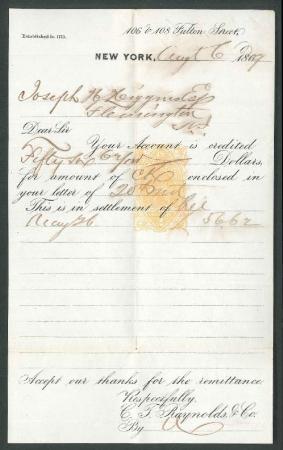 106 & 108 Fulton Street,
Established in 1775.
NEW YORK, Augt 6 1867
Joseph H. Higgins Esq
Flemington
Dear Sir
Your Account is credited
Fifty six 62/100 Dollars,
for amount of Ck enclosed in
your letter of 20th
This is in settlement of Bill
May 26 56.62
Accept our thanks for the remittance.
Respectfully,
C. T. Raynolds, & Co.
By